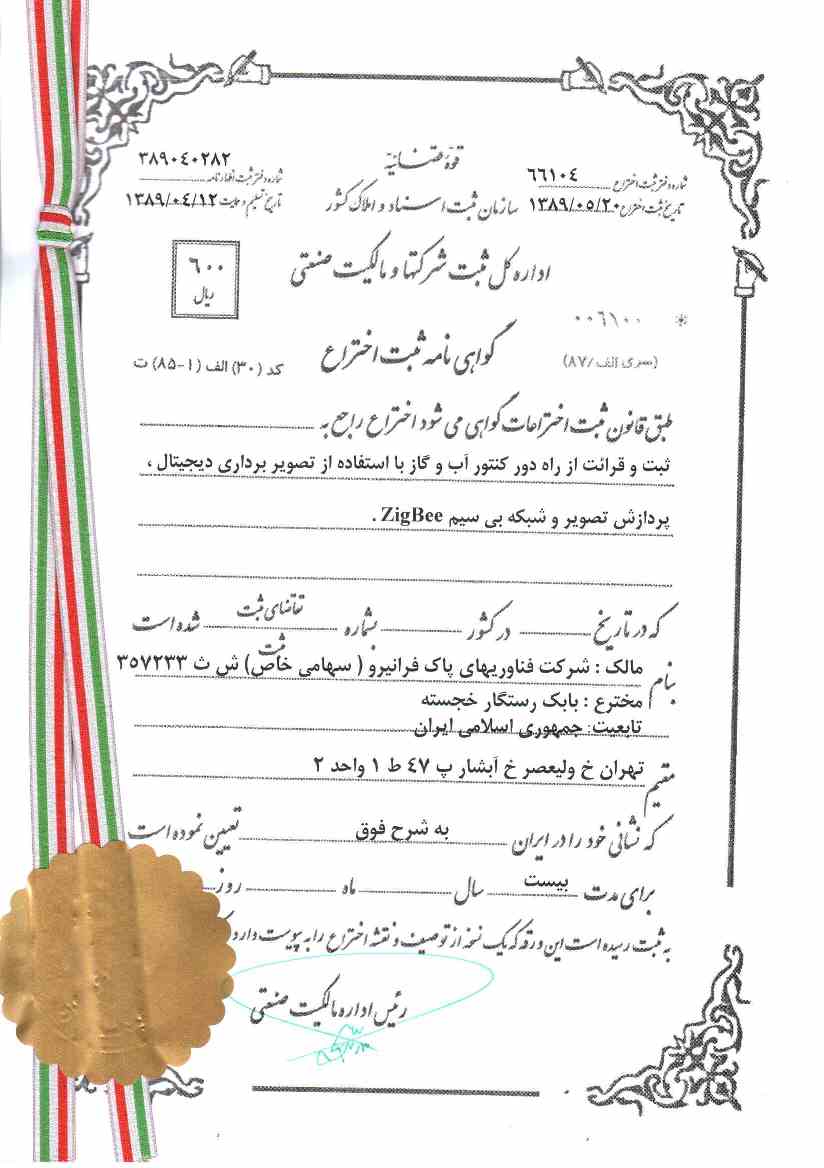 قوّه قضائیّه
شماره دفتر ثبت اختراع ٦٦١٠٤
شماره دفتر ثبت اظهارنامه ٣٨٩٠٤٠٢٨٢
سازمان ثبت اسناد و املاک کشور
تاریخ ثبت اختراع ١٣٨٩/٠٥/٢٠
تاریخ تسلیم و حمایت ١٣٨٩/٠٤/١٢
اداره کل ثبت شرکتها و مالکیت صنعتی
٦٠٠
ریال
٠٠٦١٠٠ *
(سری الف/٨٧)
گواهی نامه ثبت اختراع
کد (٣٠) الف (١-٨٥) ت
طبق قانون ثبت اختراعات گواهی می شود اختراع راجع به
ثبت و قرائت از راه دور کنتور آب و گاز با استفاده از تصویر برداری دیجیتال ،
پردازش تصویر و شبکه بی سیم ZigBee .
که در تاریخ در کشور بشماره تقاضای ثبت شده است
ثبت
بنام مالک : شرکت فناوریهای پاک فرانیرو ( سهامی خاص) ش ث ٣٥٧٢٣٣
مخترع : بابک رستگار خجسته
تابعیت: جمهوری اسلامی ایران
مقیم تهران خ ولیعصر خ آبشار پ ٤٧ ط ١ واحد ٢
که نشانی خود را در ایران به شرح فوق تعیین نموده است
برای مدت بیست سال ماه روز
به ثبت رسیده است این ورقه که یک نسخه از توصیف و نقشه اختراع را به پیوست دارد
رئیس اداره مالکیت صنعتی